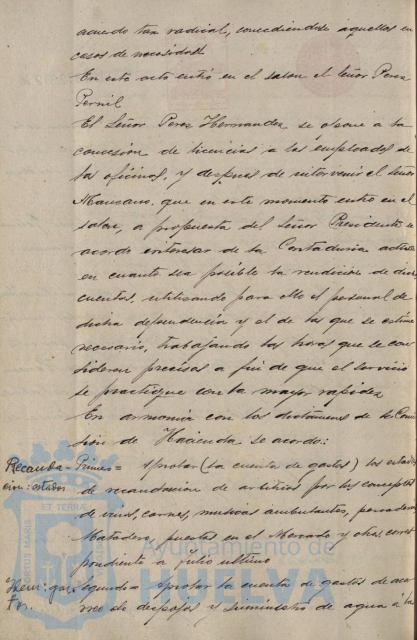 acuerdo tan radical, concediendose aquellas en
casos de necesidad
En este acto entró en el salon el señor Perez
Pernil
El Señor Perez Hernandez se opone a la
concesion de licencias a los empleados de
las oficinas, y despues de intervenir el señor
Mascaros, que en este momento entró en el
salon, a propuesta del Señor Presidente se
acordo interesar de la Contaduria active
en cuanto sea posible la rendicion de dichas
cuentas, utilizando para ello el personal de
dicha dependencia y el de las que se estime
necesario, trabajando las horas que se con
sideren precisas a fin de que el servicio
se practique con la mayor rapidez
En armonia con los dictamenes de la Comi
sion de Hacienda se acordo:
Recauda- Primero = Aprobar (la cuenta de gastos) los estados
cion: estados de recaudacion de arbitrios por los conceptos
de vinos, carnes, musicos ambulantes,
Matadero, puestos en el Mercado y otros corres
pondiente a Julio ultimo
Idem: gas Segundo = Aprobar la cuenta de gastos de aca
tos. rreo de despojos y suministro de agua á la
ET TERRA
Ayuntamiento de
HUELVA